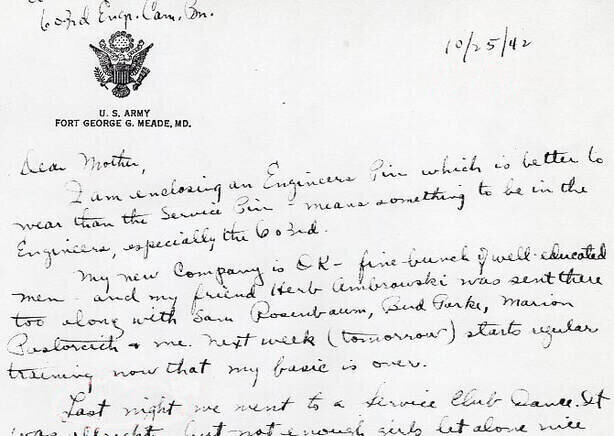 603rd Engr. Cam. Bn.
10/25/42
U. S. ARMY
FORT GEORGE G. MEADE, MD.
Dear Mother,
I am enclosing an Engineers Pin which is better to
wear than the Service Pin - means something to be in the
Engineers, especially the 603rd.
My new Company is OK - fine bunch of well-educated
men - and my friend Herb Ambrowski was sent there
too along with Sam Rosenbaum, Bud Garke, Marion
& me. Next week (tomorrow) starts regular
training now that my basic is over.
Last night we went to a Service Club Dance. It
was allright but not enough girls let alone nice